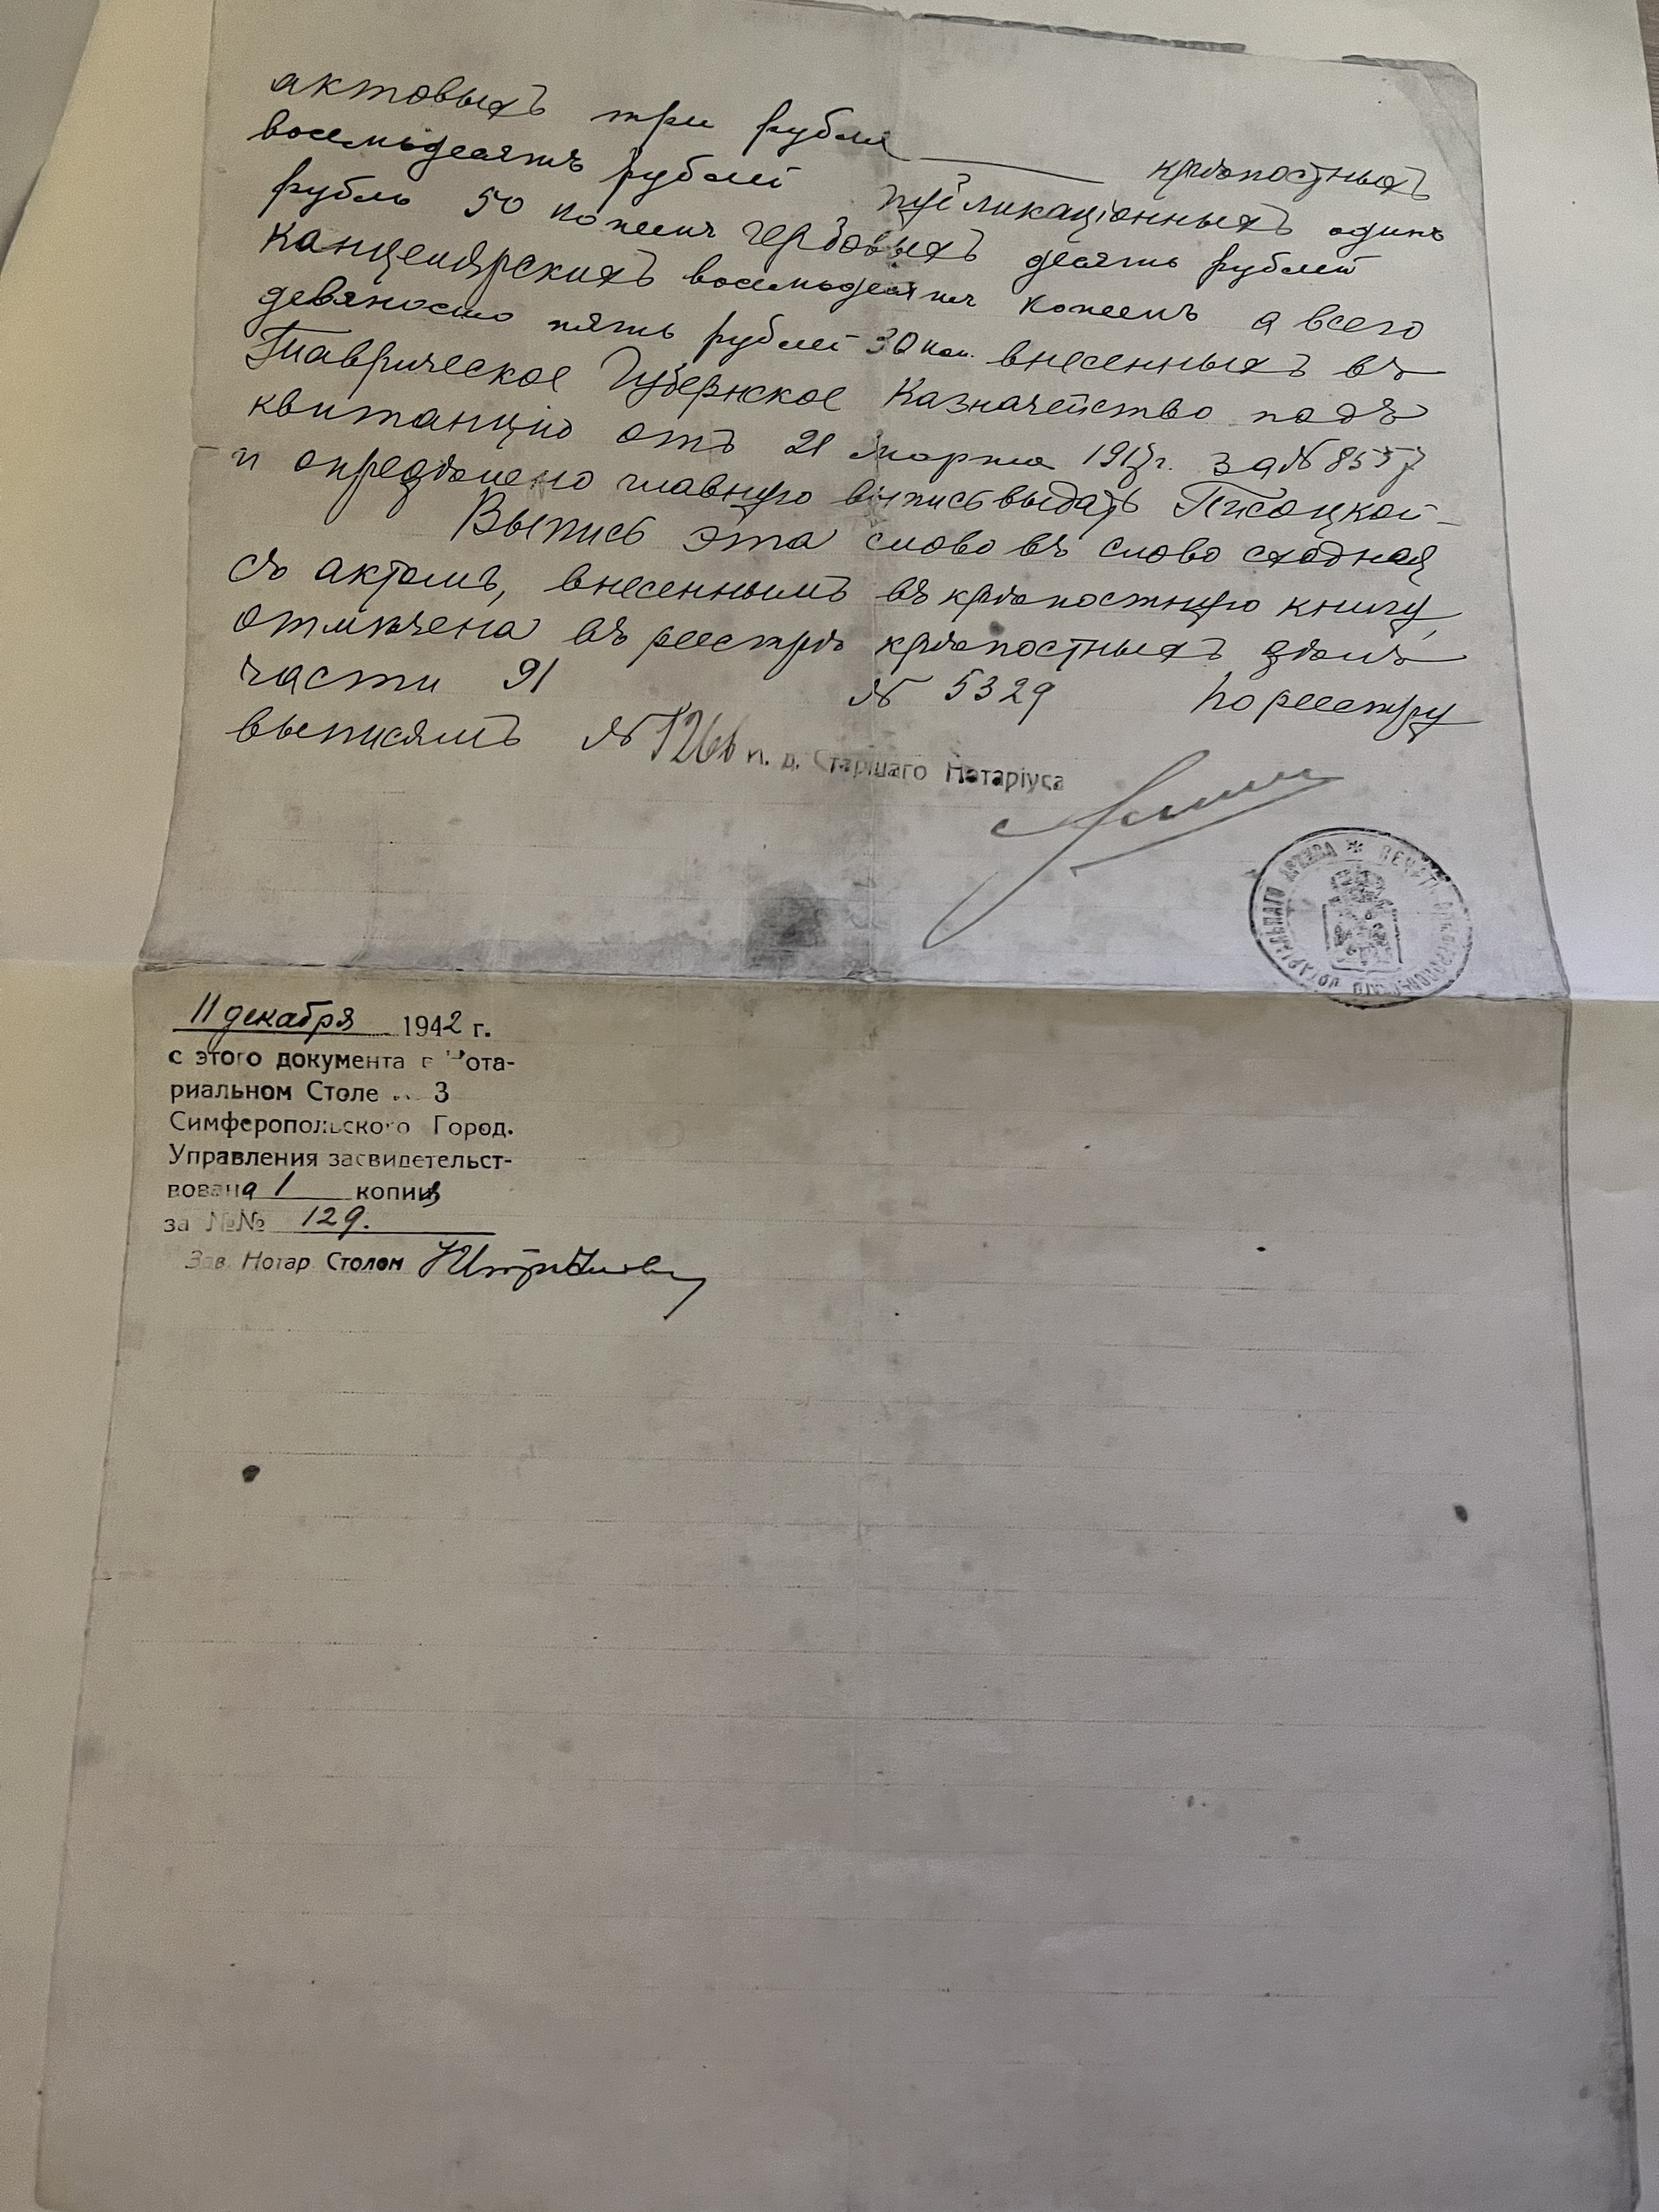 актовыхъ три рубля —— крѣпостныхъ
восемьдесятъ рублей публикаціонныхъ одинъ
рубль 50 копеекъ гербовыхъ десять рублей
канцелярскихъ восемьдесятъ копеекъ а всего
девяносто пять рублей 30 коп. внесенныхъ въ
Таврическое Губернское Казначейство подъ
квитанцію отъ 21 марта 1917 г. за № 8557
и опредѣлено главную выпись выдать
Выпись эта слово въ слово сходная
съ актомъ, внесеннымъ въ крѣпостную книгу,
отмѣчена въ реестрѣ крѣпостныхъ дѣлъ
части 91 № 5329 по реестру
выписямъ №
И. д. Старшаго Нотаріуса
ПЕЧАТЬ СИМФЕРОПОЛЬСКАГО НОТАРІАЛЬНАГО АРХИВА
11 декабря 1942 г.
с этого документа в Нота-
риальном Столе № 3
Симферопольского Город.
Управления засвидетельст-
вована 1 копия
за №№ 129.
Зав. Нотар Столом